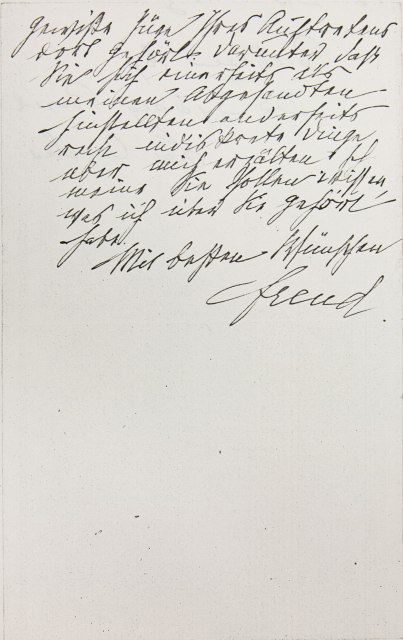 gewisse Züge Ihres Auftretens
dort gehört. darunter daß
Sie sich einerseits als
meinen Abgesandten
hinstellten anderseits
recht indiskrete Dinge
über mich erzälten. Ich
meine Sie sollen wissen,
was ich über Sie gehört
habe.
Mit besten Wünschen
Freud